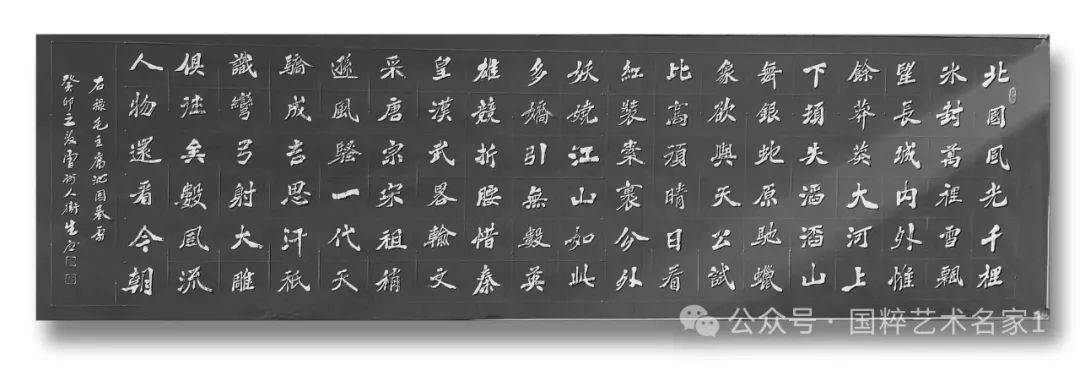 北國風光千裡
氷封萬裡雪飄
望長城內外惟
餘莽莽大河上
下頓失滔滔山
舞銀蛇原馳蠟
象欲與天公試
比高須晴日看
紅裝素裹分外
妖嬈江山如此
多嬌引無數英
雄競折腰惜秦
皇漢武畧輸文
采唐宗宋祖稍
遜風騷一代天
驕成吉思汗祇
識彎弓射大雕
俱往矣數風流
人物還看今朝
右錄毛主席沁園春雪
癸卯立
公众号·国粹艺术名家1